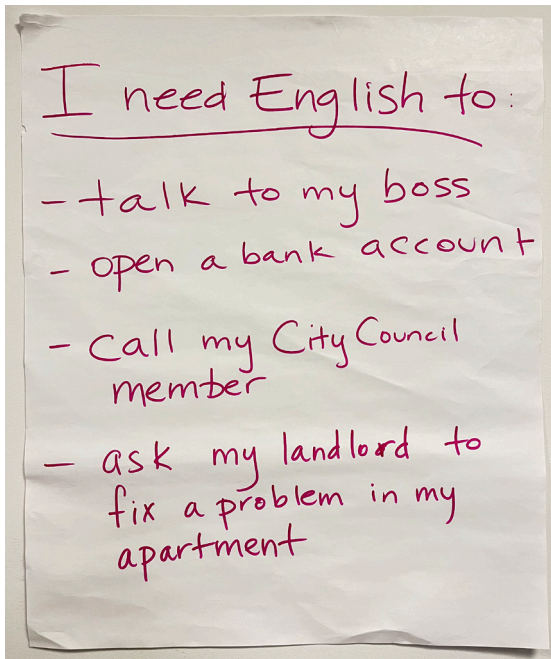 I need English to:
- talk to my boss
- open a bank account
- Call my City Council
member
- ask my landlord to
fix a problem in my
apartment